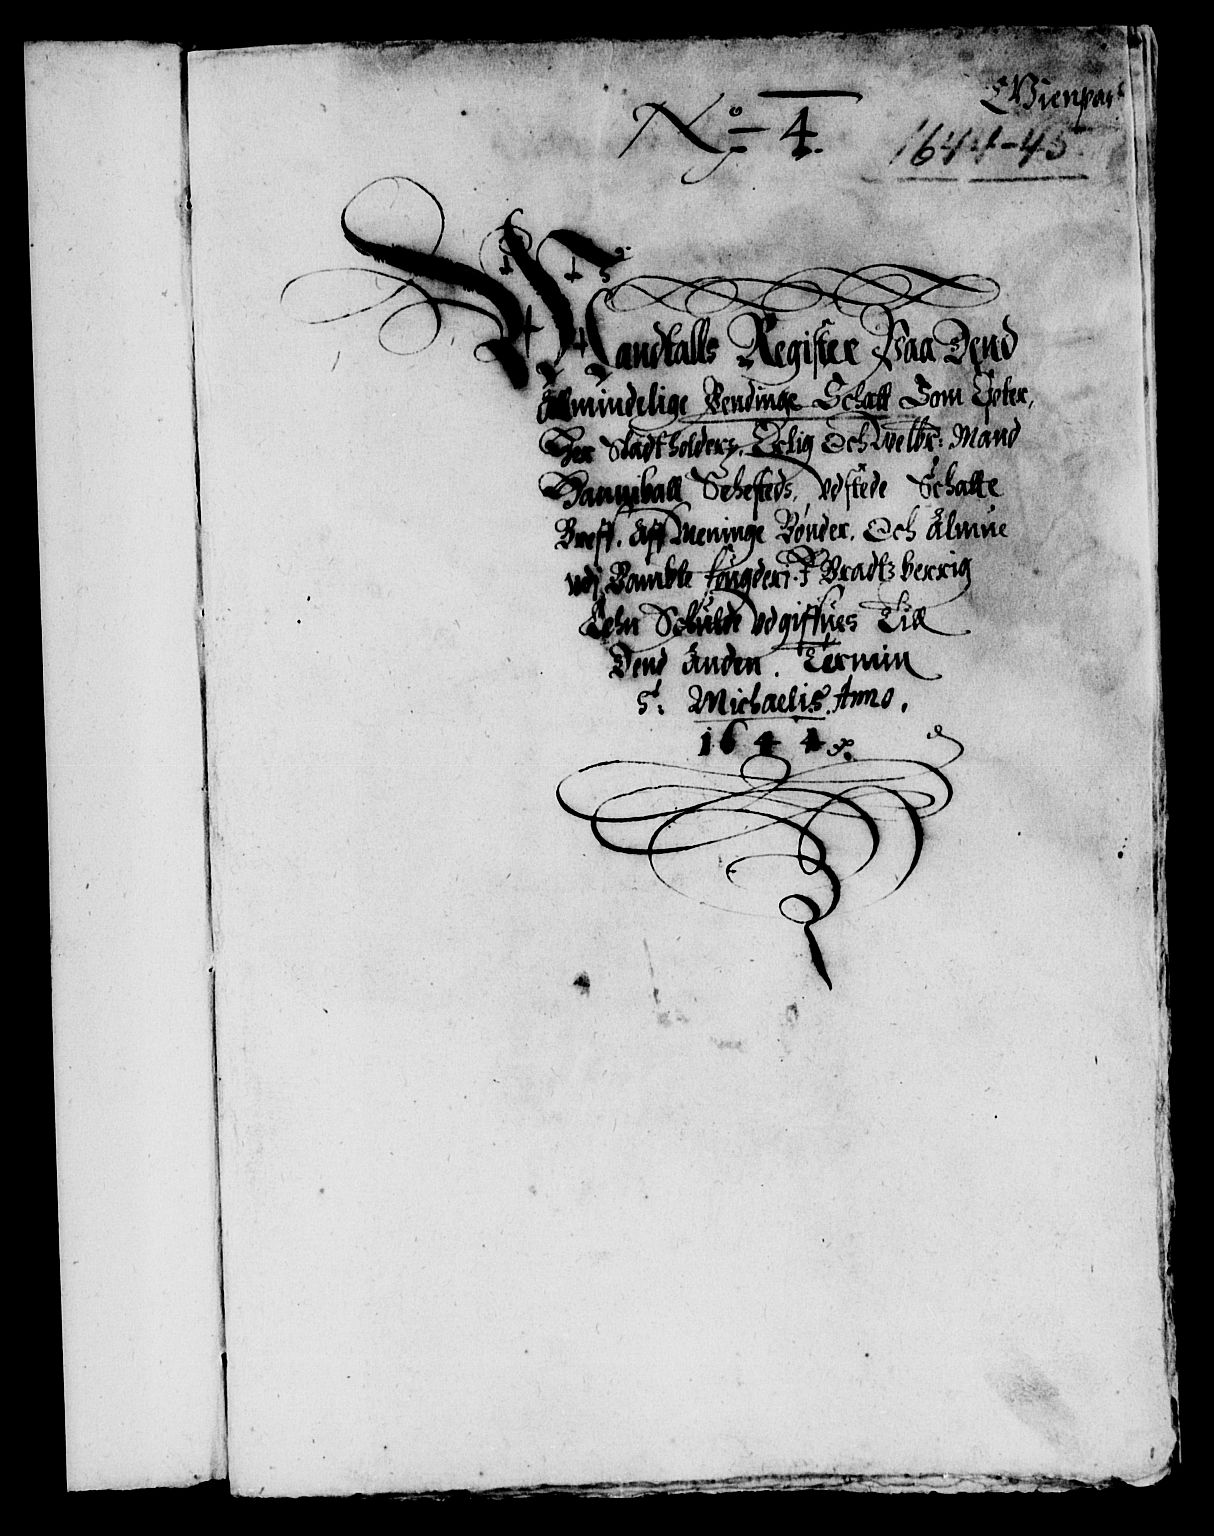 No 4
1644-45
Mandtalls Register Paa Dend
Almindelige Pendinge Schatt Som Epter,
Her Stadtholders, Erlig Och Welbr: Mand
Hanniball Sehesteds, vdstede Schatte
Breff, Aff Meninge Bønder, Och Almue
vdj Bamble fougderj I Bradtzberrig
Lehn Schulde vdgiffues Till
Dend Anden. Termin
St: Michaelis Anno,
1644